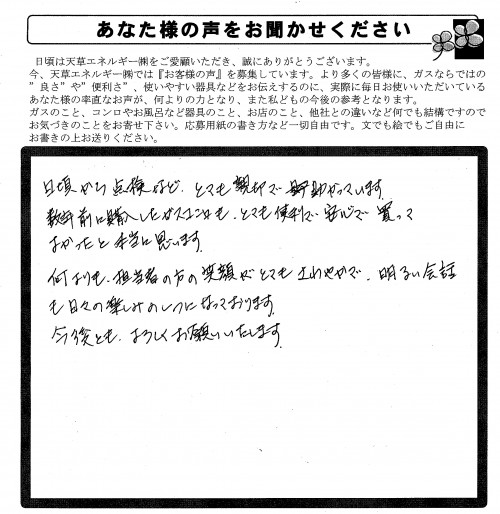 あなた様の声をお聞かせください
日頃は天草エネルギー㈱をご愛顧いただき、誠にありがとうございます。
今、天草エネルギー㈱では『お客様の声』を募集しています。より多くの皆様に、ガスならではの
”良さ”や”便利さ”、使いやすい器具などをお伝えするのに、実際に毎日お使いいただいている
あなた様の率直なお声が、何よりの力となり、また私どもの今後の参考となります。
ガスのこと、コンロやお風呂など器具のこと、お店のこと、他社との違いなど何でも結構ですので
お気づきのことをお寄せ下さい。応募用紙の書き方など一切自由です。文でも絵でもご自由に
お書きの上お送りください。
日頃から点検など、とても親切で助かっています。
数年前に購入したガスコンロも、とても便利で安心で買って
よかったと本当に思います。
何よりも、担当者の方の笑顔がとてもさわやかで、明るい会話
も日々の楽しみの一つになっております。
今後とも、よろしくお願いいたします。